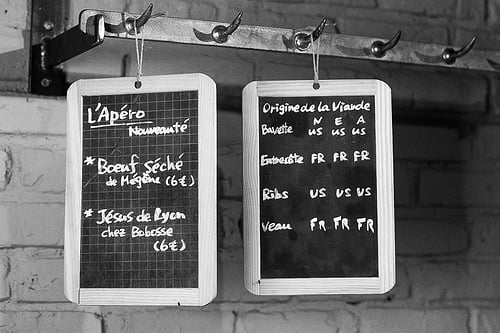 L'Apéro
Nouveauté
* Boeuf Séché
de Mégène (6€)
* Jésus de Lyon
chez Bobosse
(6€)
Origine de la Viande
N E A
Bavette US US US
Entrecôte FR FR FR
Ribs US US US
Veau FR FR FR